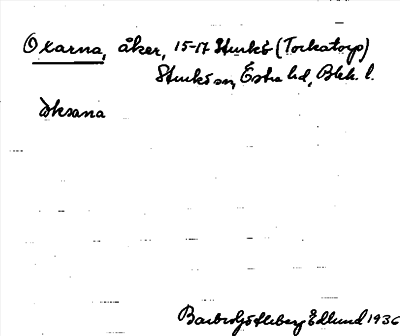 Oxarna, åker, 15-17 Sturkö (Torkatorp)
Sturkö sn, Östra hd, Blek. l.
Edlund 1936